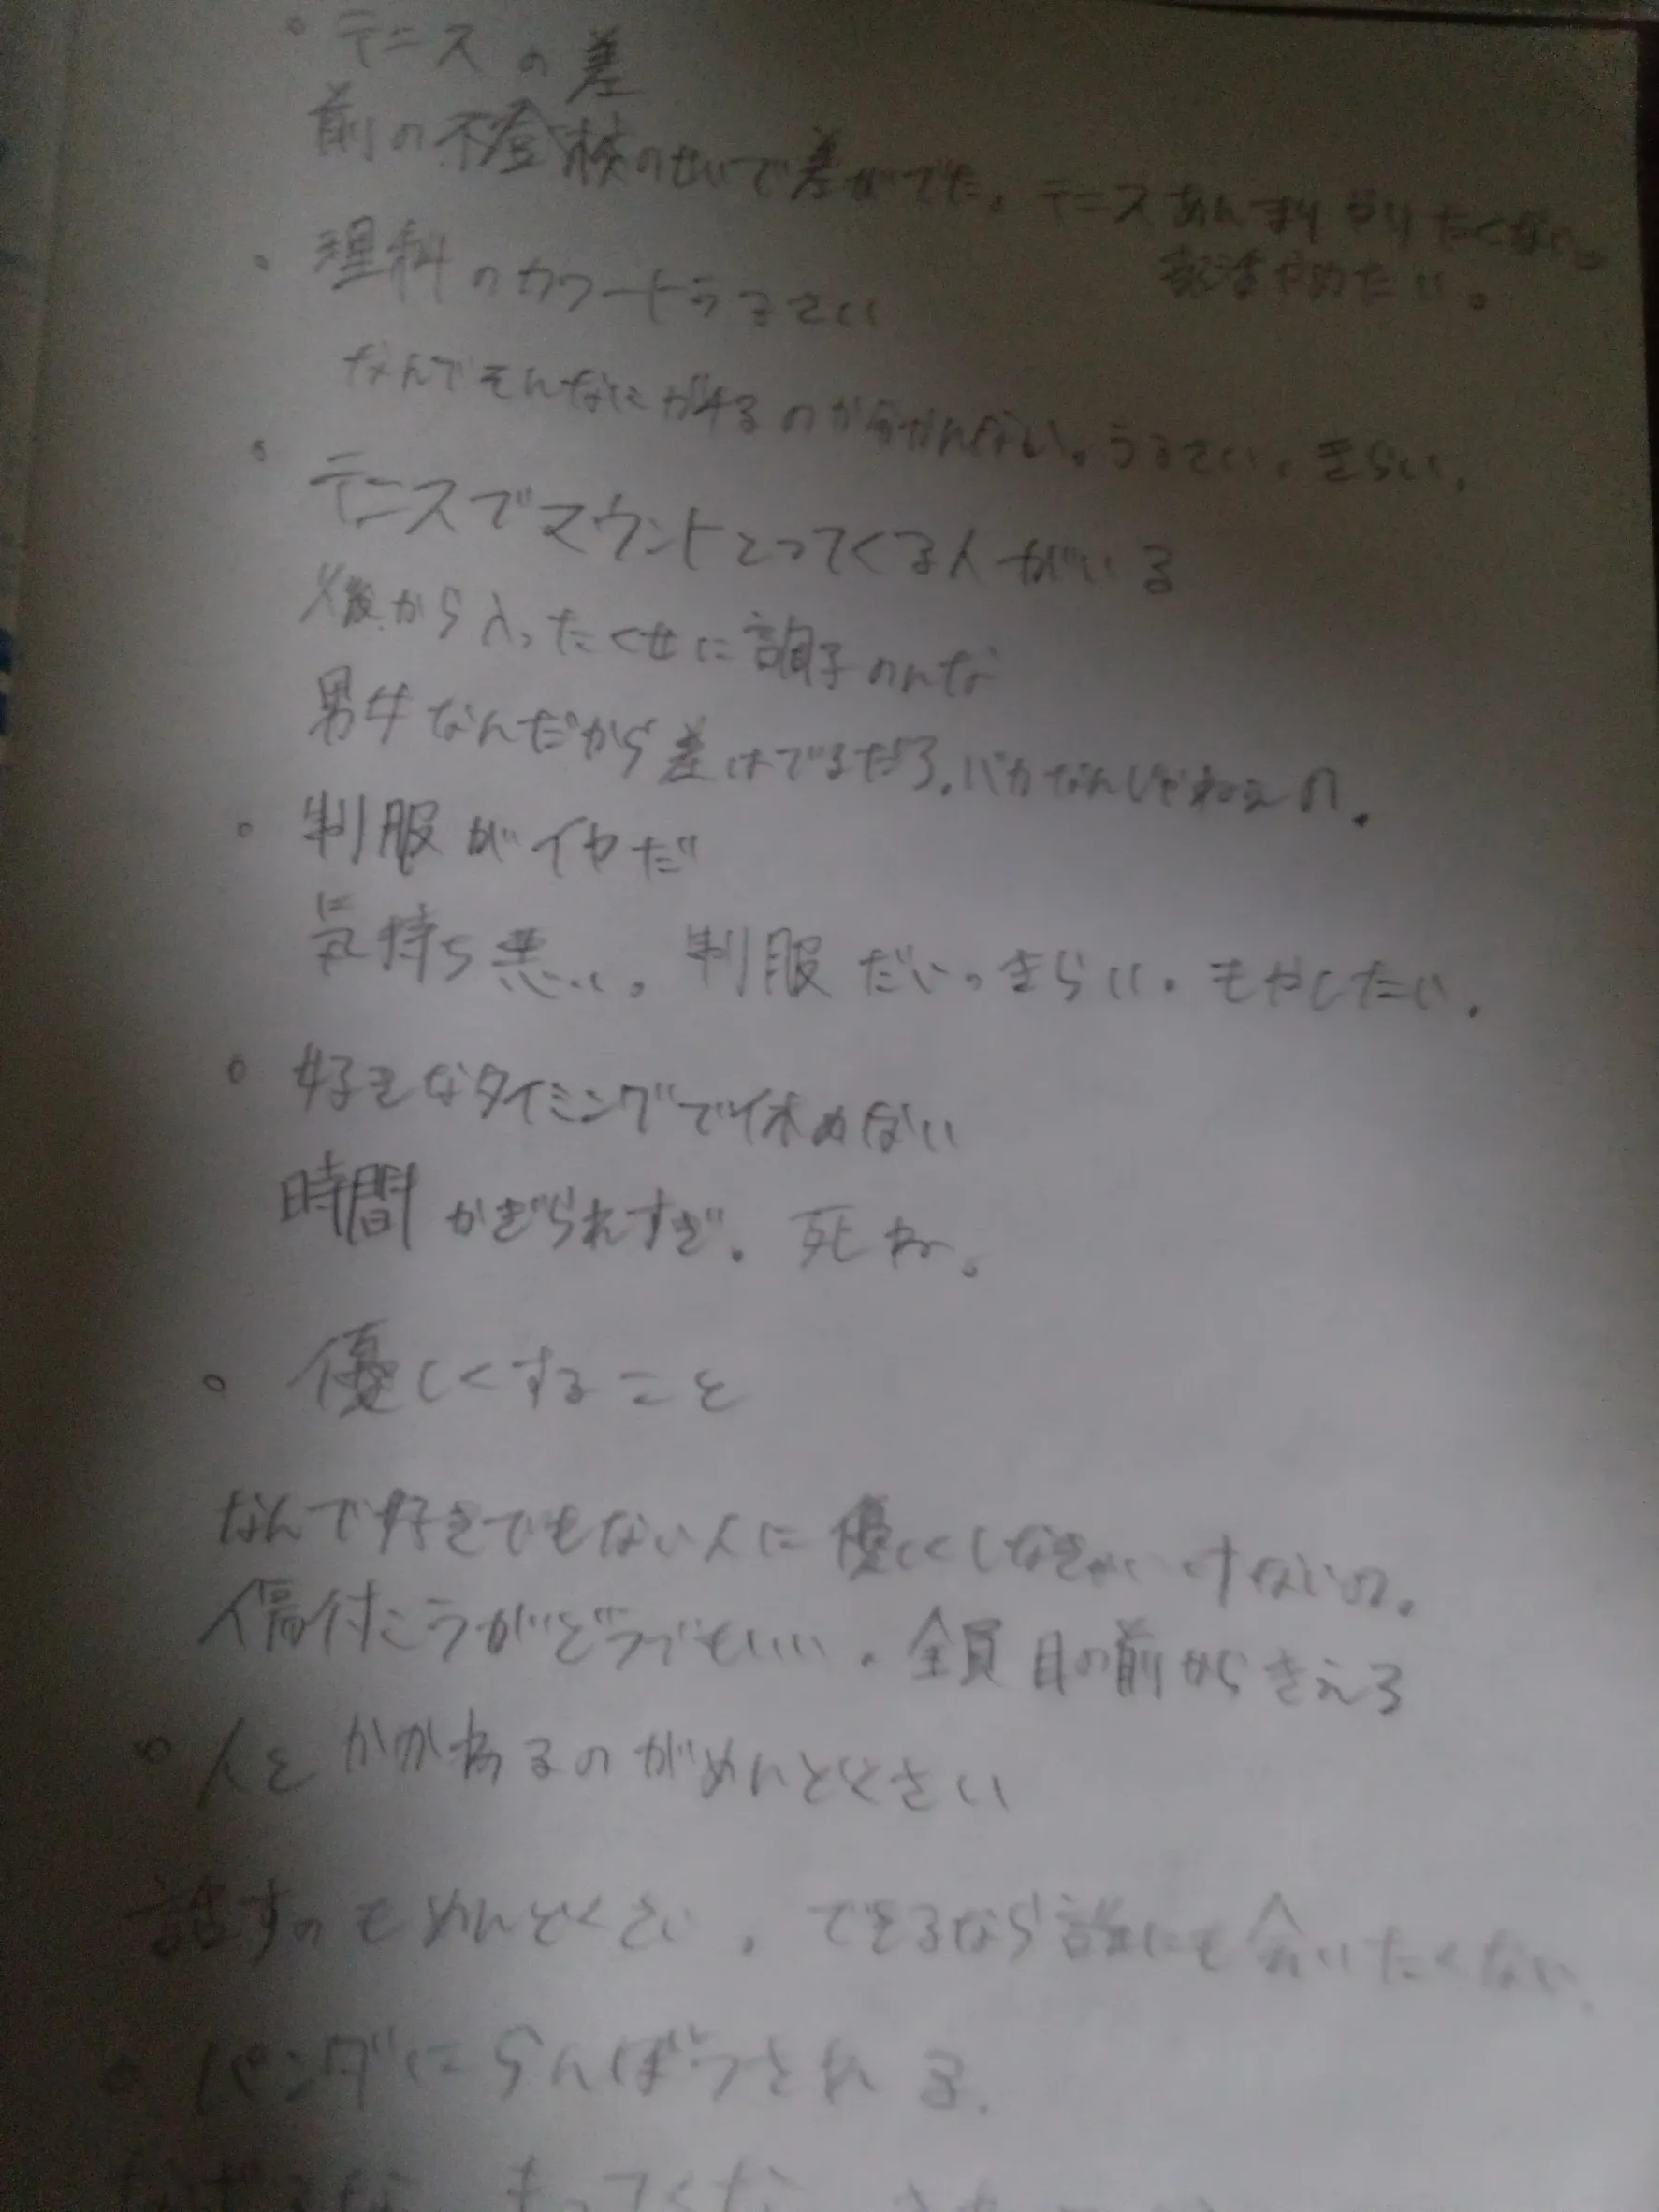 ・テニスの差
前の不登校のせいで差がでた。テニスあんまりやりたくない。
部活やめたい。
・理科のカワートうるさい
なんでそんなにがするのか分かんない。うるさい。きらい。
・テニスでマウントとってくる人がいる
後から入ったくせに調子のんな
男女なんだから差はでるだろ。バカなんじゃねえの。
・制服がイヤだ
気持ち悪い。制服だいっきらい。もやしたい。
・好きなタイミングで休めない
時間かぎられすぎ。死ね。
・優しくすること
なんで好きでもない人に優しくしなきゃいけないの。
傷付こうがどうでもいい。全員目の前からきえろ
・人とかかわるのがめんどくさい
話すのもめんどくさい。できるなら誰にも会いたくない
・パンダにらんぼうされる。